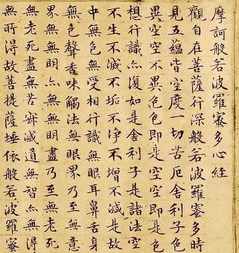 摩訶般若波羅蜜多心經
觀自在菩薩行深般若波羅蜜多時
見五蘊皆空度一切苦厄舍利子色
異空空不異色色即是空空即是色
想行識亦復如是舍利子是諸法空
不生不滅不垢不淨不增不減是故
中無色無受想行識無眼耳鼻舌身
無色聲香味觸法無眼界乃至無意
界無無明亦無無明盡乃至無老死
無老死盡無苦集滅道無智亦無得
無所得故菩提薩埵依般若波羅蜜